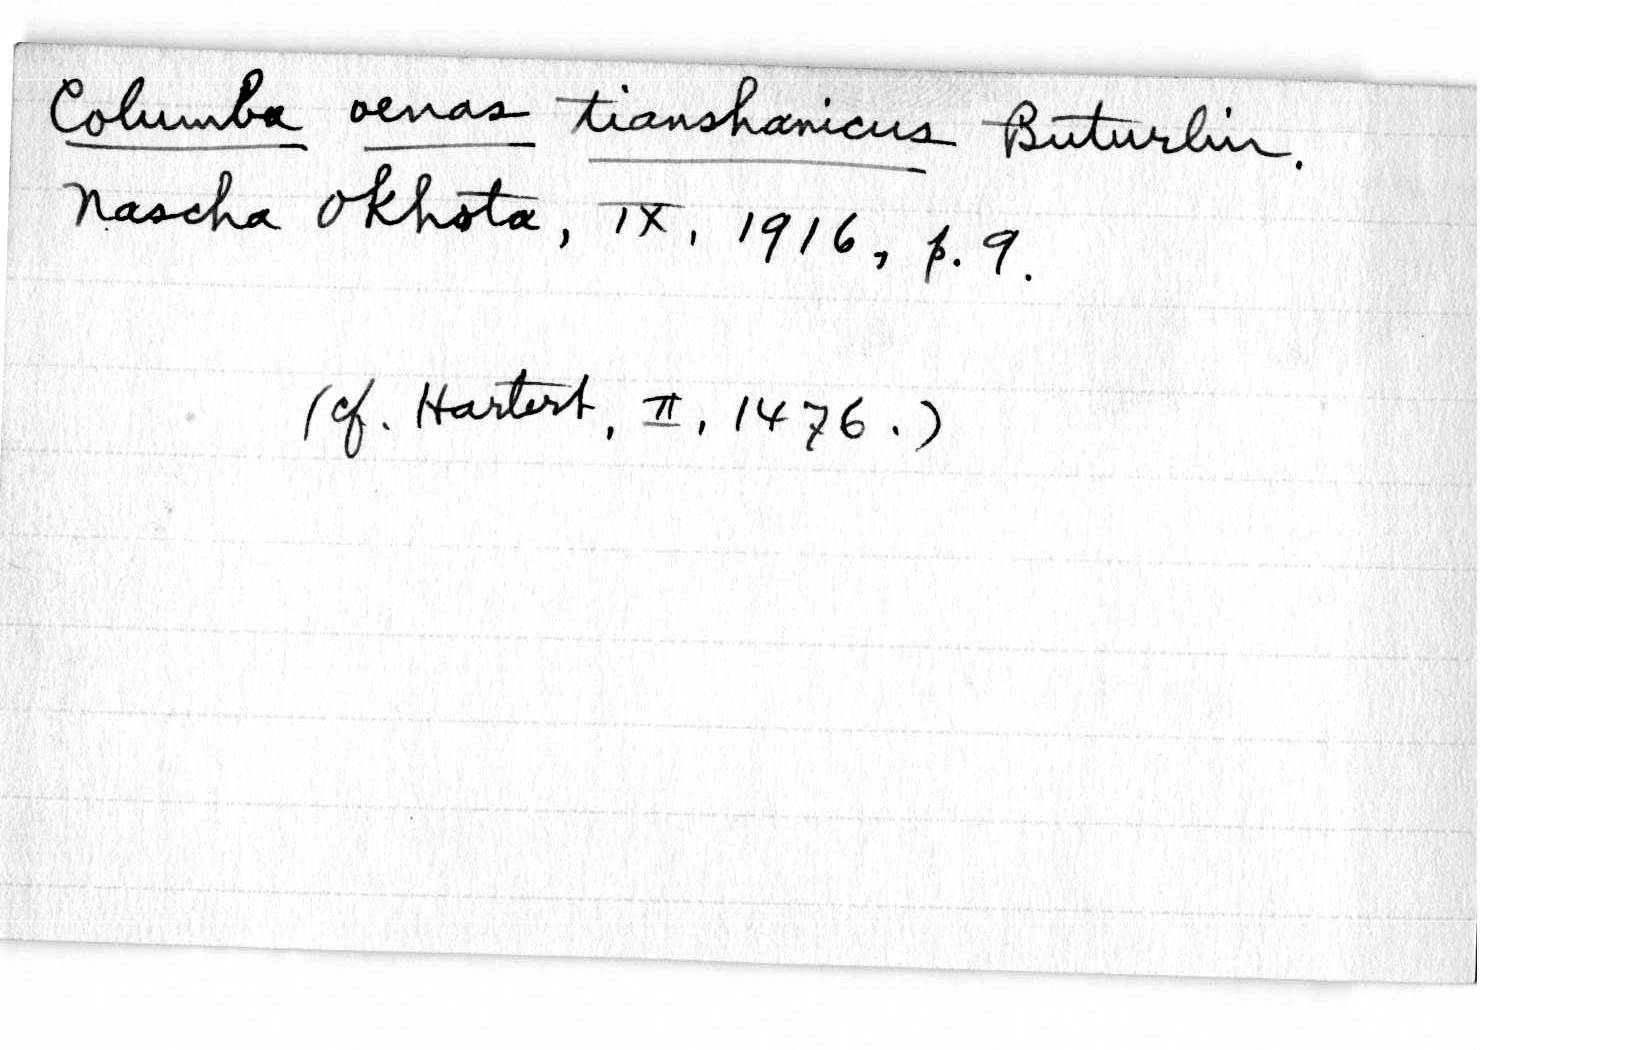 Columba oenas tianshanicus Buturlin.
Nascha Okhota, IX, 1916, p. 9.
(cf. Hartert, II, 1476.)